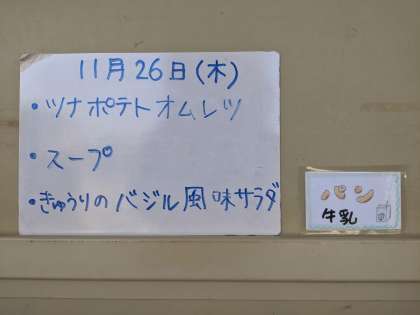 11月26日(木)
・ツナポテトオムレツ
・スープ
・きゅうりのバジル風味サラダ
パン
牛乳